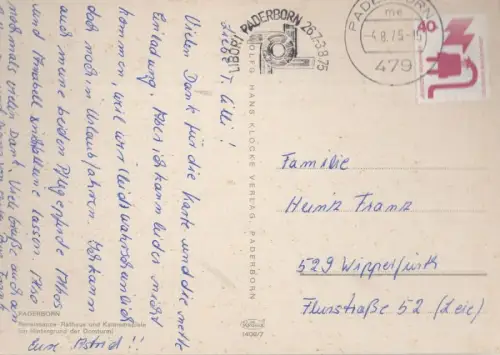 Liebe T. Lilli!
Vielen Dank für die Karte und die nette
Einladung. Aber ich kann leider nicht
kommen, weil wir leider wahrscheinlich
doch noch in Urlaub fahren. Ich kann
auch meine beiden Pflegepferde
und nicht alleine lassen. Also
nochmals vielen Dank. Viele Grüße auch an
Eure Astrid!!
PADERBORN
Renaissance-Rathaus und Kaiserstraße
(im Hintergrund der Domturm)
WOLFG. HANS KLOCKE VERLAG, PADERBORN
1408/7
LIBORI PADERBORN 26.7-3.8.75
PADERBORN
me
-4.8.75-15
479
40
Familie
Heinz Franz
529 Wipperfürth
Flurstraße 52 (Leie)